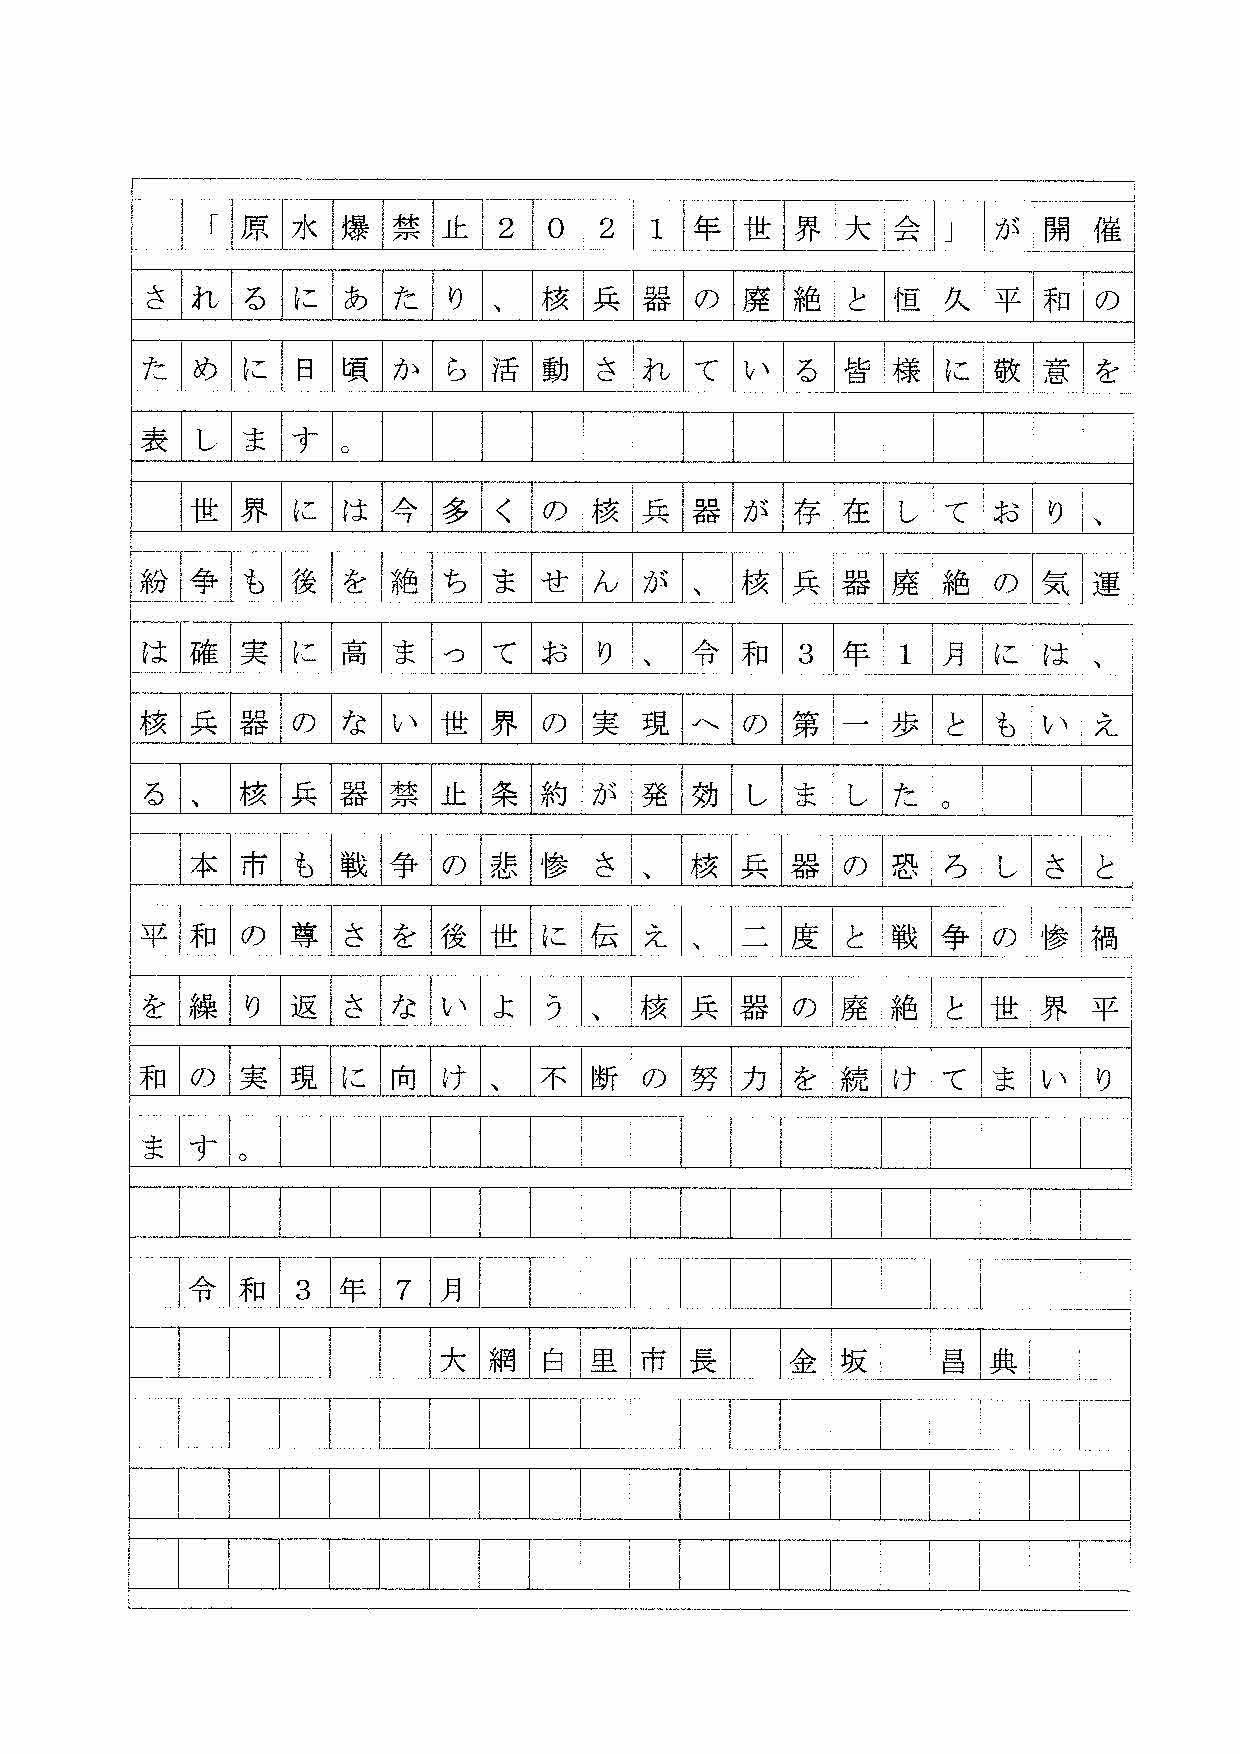 「原水爆禁止２０２１年世界大会」が開催
されるにあたり、核兵器の廃絶と恒久平和の
ために日頃から活動されている皆様に敬意を
表します。
世界には今多くの核兵器が存在しており、
紛争も後を絶ちませんが、核兵器廃絶の気運
は確実に高まっており、令和３年１月には、
核兵器のない世界の実現への第一歩ともいえ
る、核兵器禁止条約が発効しました。
本市も戦争の悲惨さ、核兵器の恐ろしさと
平和の尊さを後世に伝え、二度と戦争の惨禍
を繰り返さないよう、核兵器の廃絶と世界平
和の実現に向け、不断の努力を続けてまいり
ます。
令和３年７月
大網白里市長　金坂　昌典